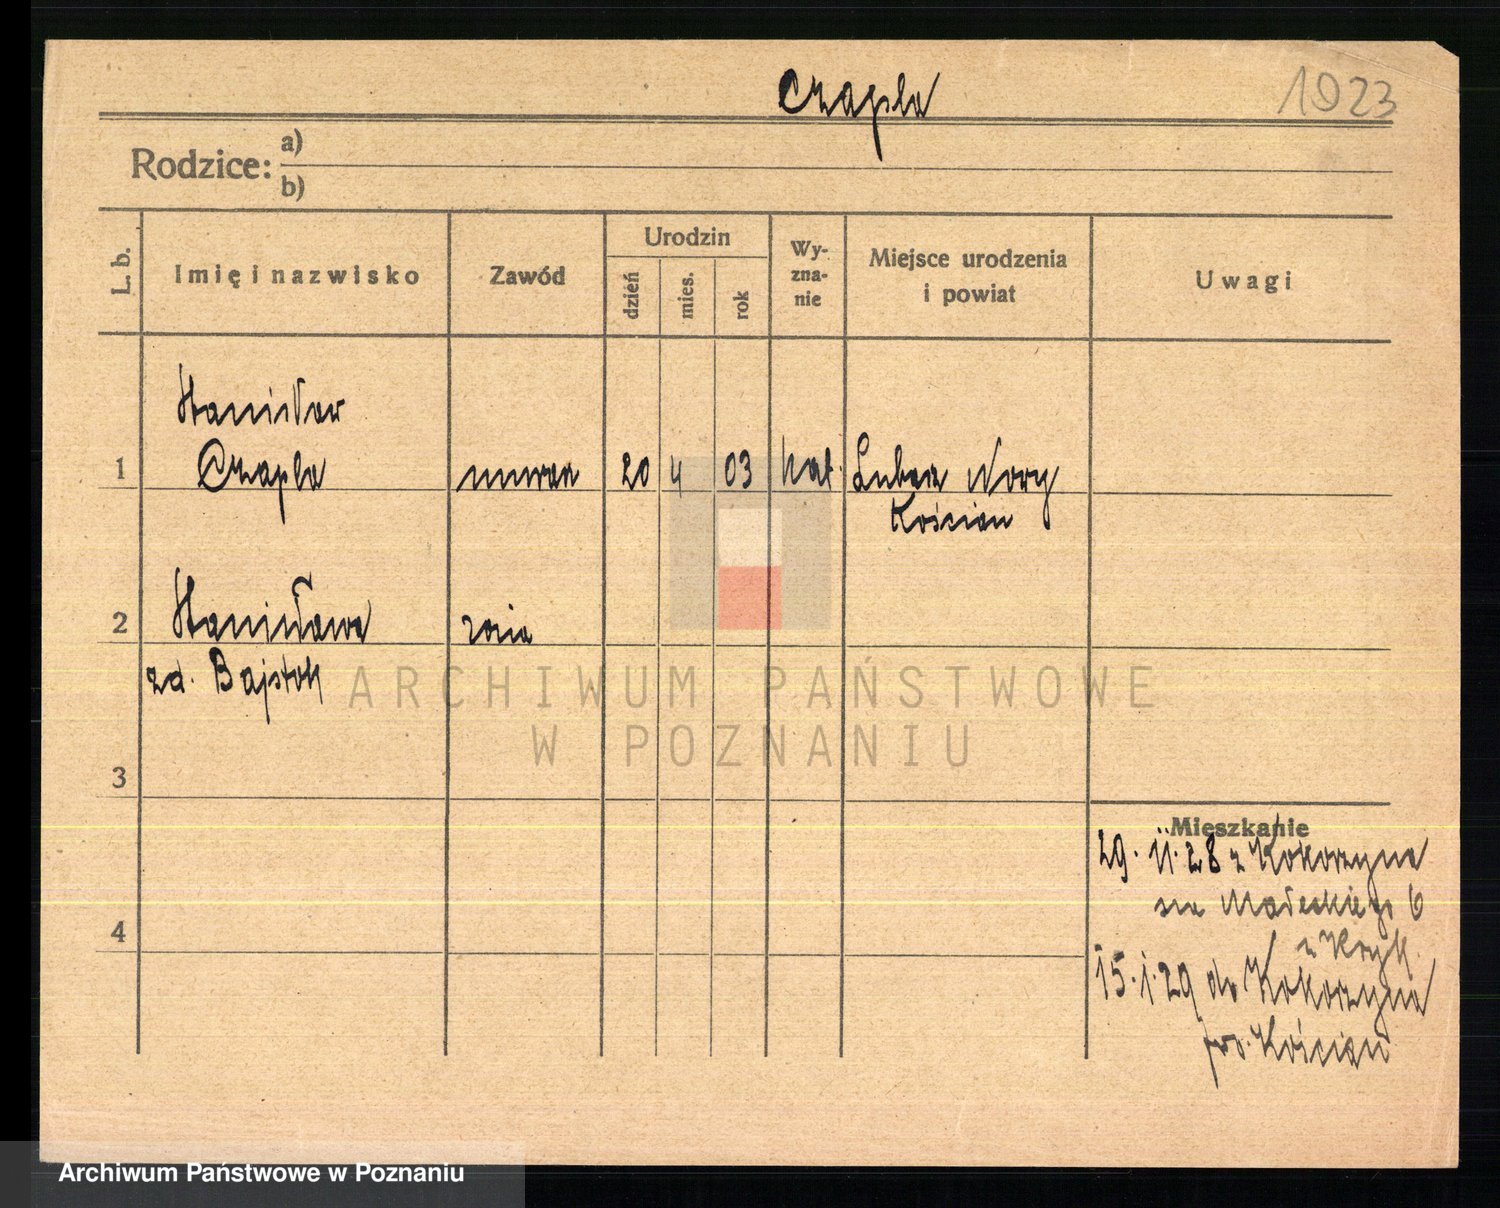 Czapla 1923
Rodzice: a)
b)
L. b. Imię i nazwisko Zawód Urodzin dzień mies. rok Wyznanie Miejsce urodzenia i powiat Uwagi
Stanisław
1 Czapla murarz 20 4 03 kat. Nowy
Kościan
2 Stanisława żona
zd. Bajstok
ARCHIWUM PAŃSTWOWE
W POZNANIU
3
Mieszkanie
29. 11. 28 z Kokorzyna
na Małeckiego 6
4 u
15. 1. 29 do Kokorzyna
pow. Kościan
Archiwum Państwowe w Poznaniu